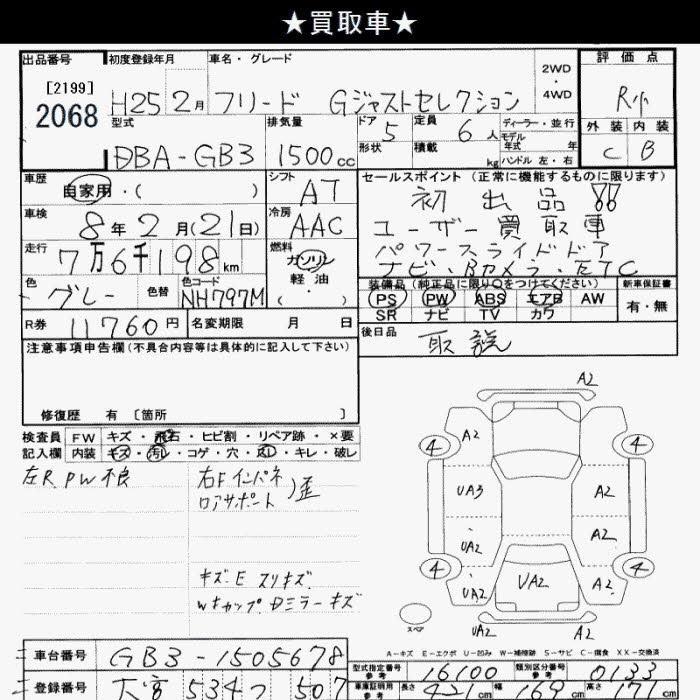 ★買取車★
出品番号 初度登録年月 車名・グレード 2WD・4WD 評価点
[2199]
2068 H25 2月 フリード Gジャストセレクション R小
型式 排気量 ドア 5 定員 6人 ディーラー・並行 外装 内装
モデル年式 年
DBA-GB3 1500cc 形状 積載 kg ハンドル 左・右 C B
車歴 自家用・( ) シフト AT セールスポイント(正常に機能するものに限ります)
初出品!!
車検 8年2月(21日) 冷房 AAC ユーザー買取車
走行 7万6千198km 燃料 ガソリン パワースライドドア
軽油 ナビ・Bカメラ・ETC
色 グレー 色替 色コード NH797M ( ・ ) 装備品(純正品に限り○をつけてください) 新車保証書
PS PW ABS エアB AW 有・無
R券 11760円 名変期限 月 日 SR ナビ TV カワ
注意事項申告欄(不具合内容等は具体的に記入して下さい) 後日品 取説
修復歴 有 〔箇所 〕
検査員 FW キズ・飛石・ヒビ割・リペア跡・×要
記入欄 内装 キズ・汚レ・コゲ・穴・凹・キレ・破レ
左R.PW不良 右Fインパネ
ロアサポート)歪
キズE スリキズ
Wキャップ Dミラーキズ
A2
4 A2 4
UA3 A2
UA2 A2
4 4
UA2 UA2 A2
スペア UA2 A2
A-キズ E-エクボ U-凹み W-補修跡 S-サビ C-腐食 XX-交換済
車台番号 GB3-1505678 型式指定番号 参考 16100 類別区分番号 参考 0133
登録番号 大宮 534 ツ 507 車庫証明用 参考 長さ 421cm 幅 169cm 高さ 171cm